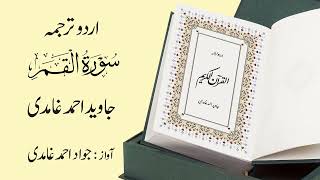 اردو ترجمہ
سُوْرَةُ الْقَمَر
جاوید احمد غامدی
آواز : جواد احمد غامدی
القرآن الکریم
جاوید احمد غامدی